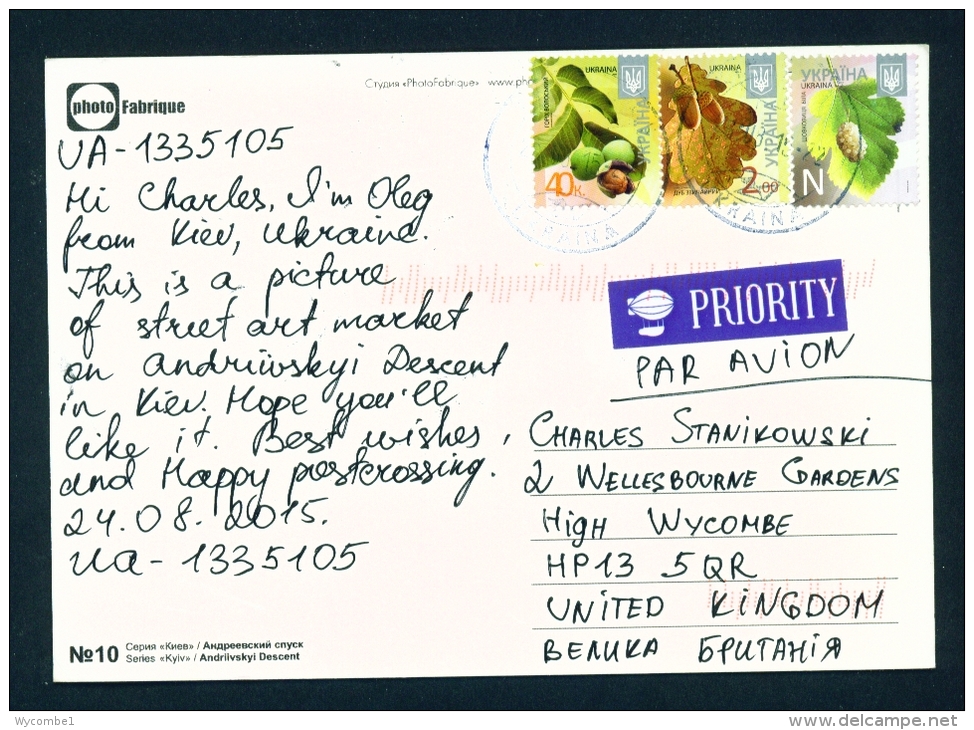 photo Fabrique
Студия «PhotoFabrique» www.pho
UKRAINA
40к.
UKRAINA
УКРАЇНА
2.00
УКРАЇНА
UKRAINA
N
UA-1335105
Hi Charles, I'm Oleg
from Kiev, Ukraine.
This is a picture
of street art market
on Andriivskyi Descent
in Kiev. Hope you'll
like it. Best wishes,
and Happy postcrossing.
24.08.2015.
UA-1335105
PRIORITY
PAR AVION
CHARLES STANIKOWSKI
2 WELLESBOURNE GARDENS
HIGH WYCOMBE
HP13 5QR
UNITED KINGDOM
ВЕЛИКА БРИТАНІЯ
№10 Серия «Киев» / Андреевский спуск
Series «Kyiv» / Andriivskyi Descent
Wycombe1
www.delcampe.net